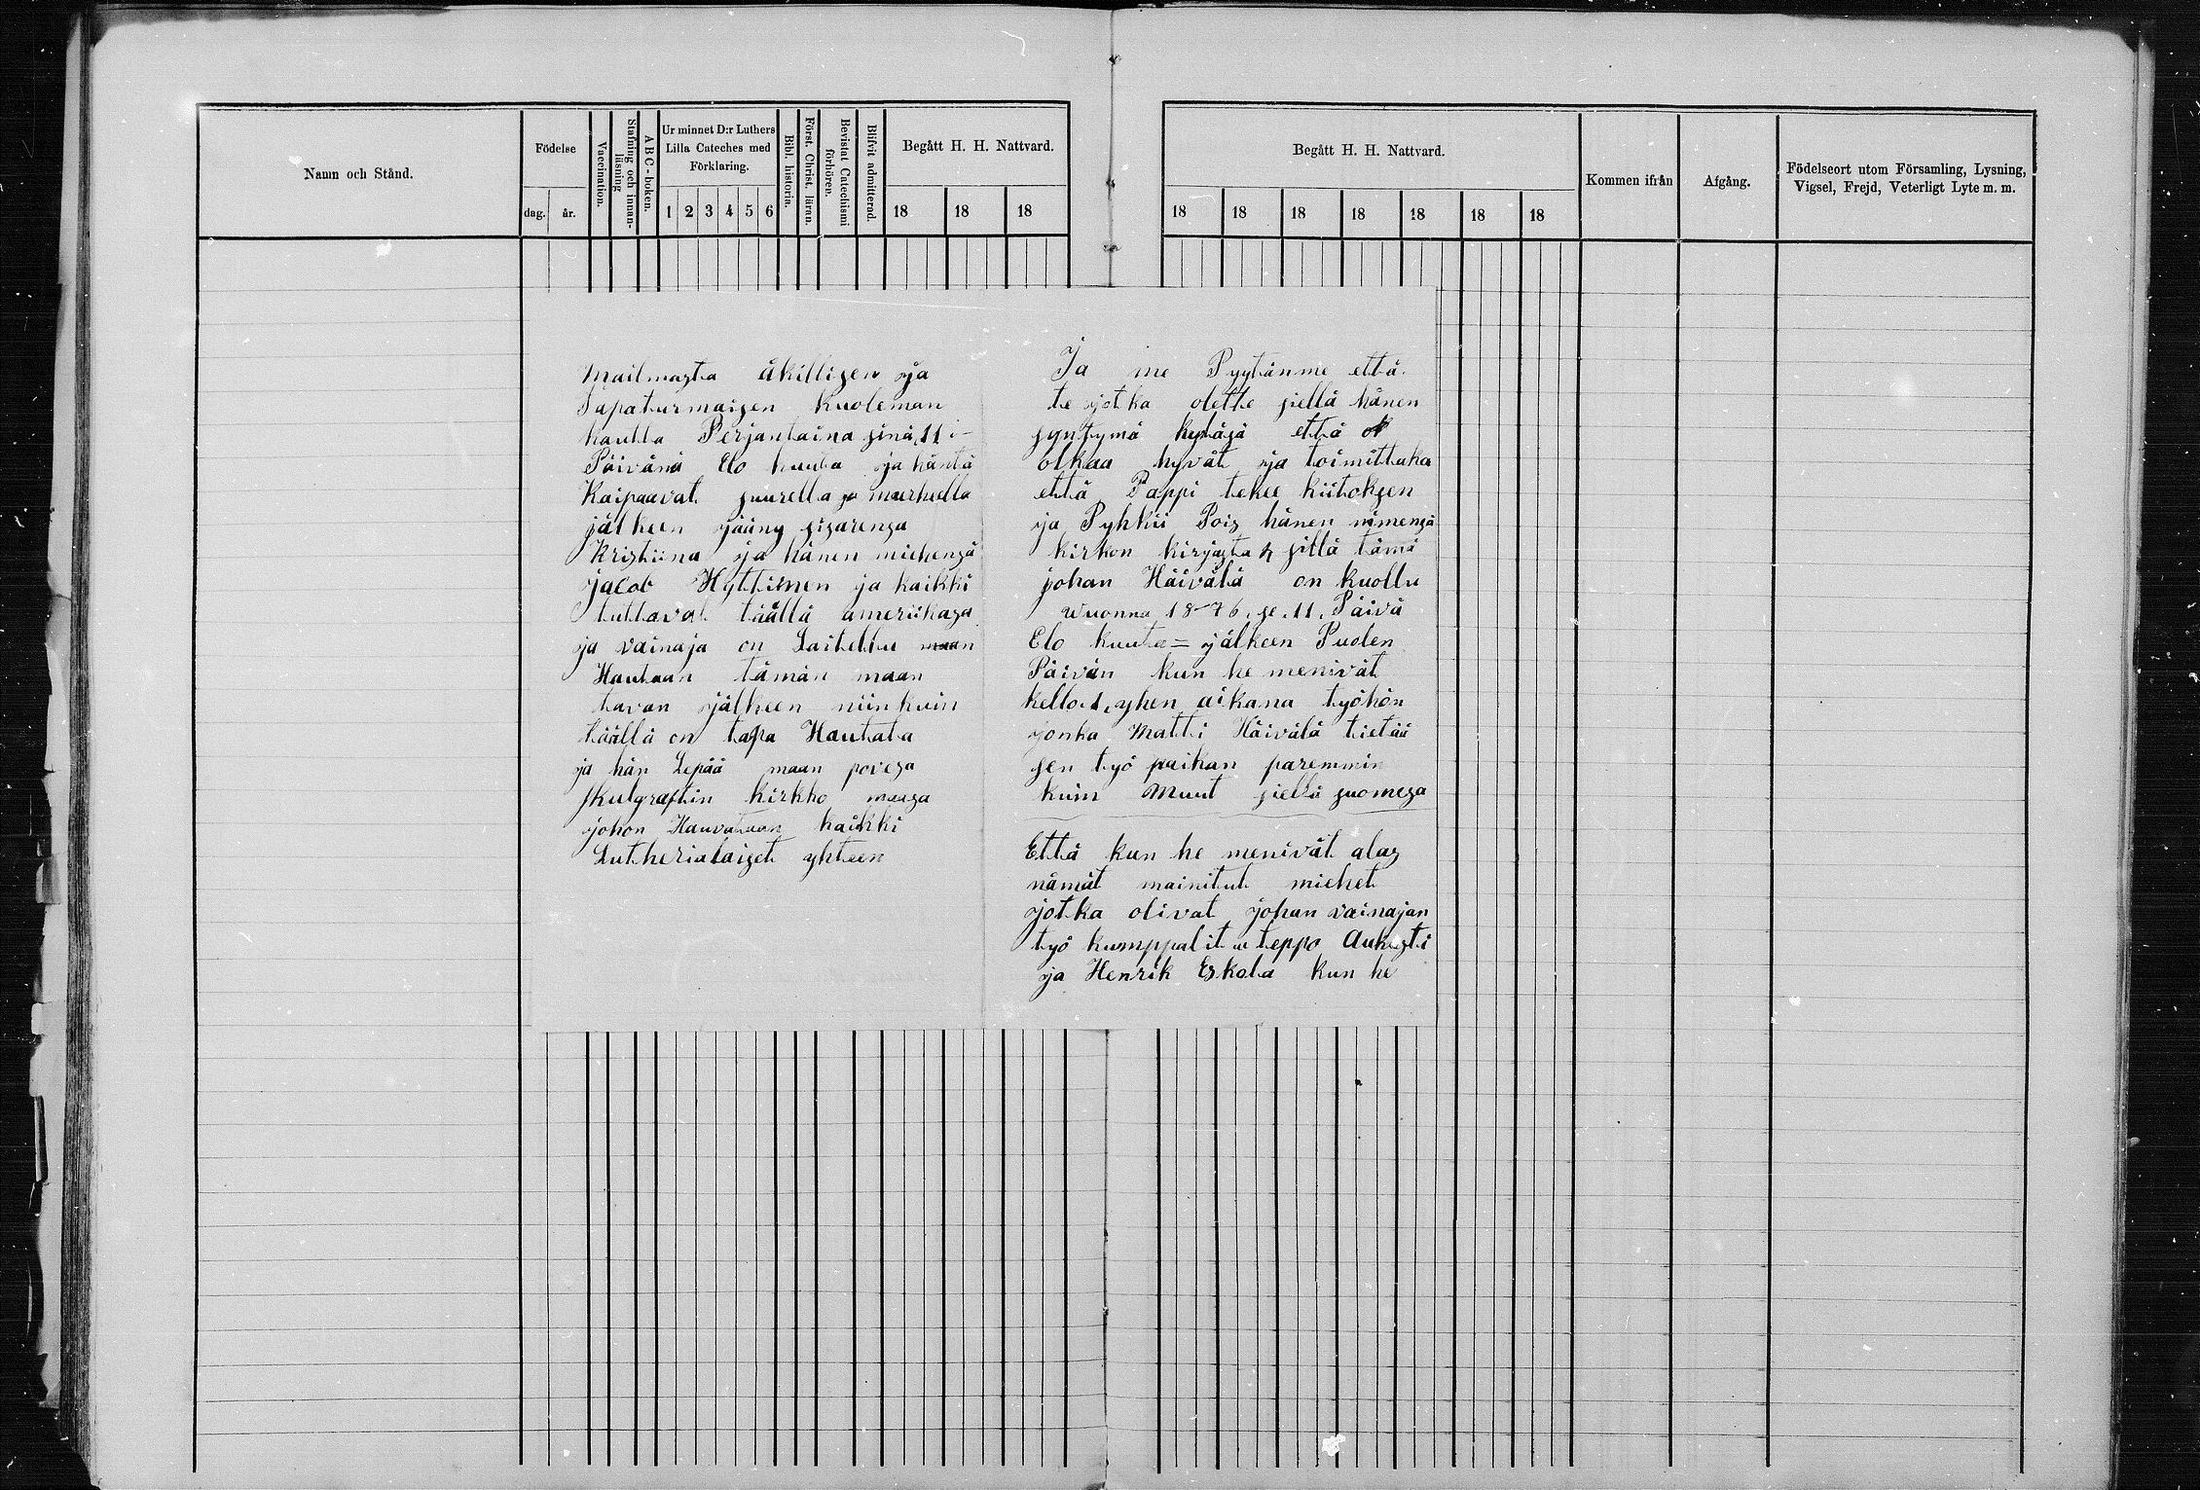 Namn och Stånd.
Födelse
dag.
år.
Vaccination.
Stafning och innan-
läsning
ABC-boken.
Ur minnet D:r Luthers
Lilla Cateches med
Förklaring.
1 2 3 4 5 6
Bibl. historia.
Först. Christ. läran.
Bevistat Catechismi
förhören.
Blifvit admitterad.
Begått H. H. Nattvard.
18 18 18
Begått H. H. Nattvard.
18 18 18 18 18 18 18
Kommen ifrån
Afgång.
Födelseort utom Församling, Lysning,
Vigsel, Frejd, Veterligt Lyte m. m.
Mailmasta äkillisen ja
Tapaturmaisen kuoleman
kautta Perjantaina sinä 11 i-
Päivänä Elo kuuta ja häntä
Kaipaavat suurella ja murhella
jälkeen jääny sisarensa
Kristiina ja hänen miehensä
jacob Hyttinen ja kaikki
tuttavat täällä ameriikasa
ja vainaja on Laitettu maan
Hautaan tämän maan
tavan jälkeen niinkuin
täällä on tapa Hautata
ja hän Lepää maan povesa
kirkko maasa
johon Hauvataan kaikki
Lutherialaiset yhteen
Ja me Pyytänme että
te jotka olette siellä hänen
syntymä kyläsä että
olkaa hyvät ja toimittaka
että Pappi tekee kiitoksen
ja Pyhkii Pois hänen nimensä
kirkon kirjasta sillä tämä
johan Häivälä on kuollu
wuonna 18-76. se .11. Päivä
Elo kuuta = jälkeen Puolen
Päivän kun he menivät
kello .1. yhen aikana työhön
jonka Matti Häivälä tietää
sen työ paikan paremmin
kuin Muut siellä suomesa
Että kun he menivät alas
nämät mainitut miehet
jotka olivat johan vainajan
työ kumppalit teppo Aukusti
ja Henrik Eskola kun he